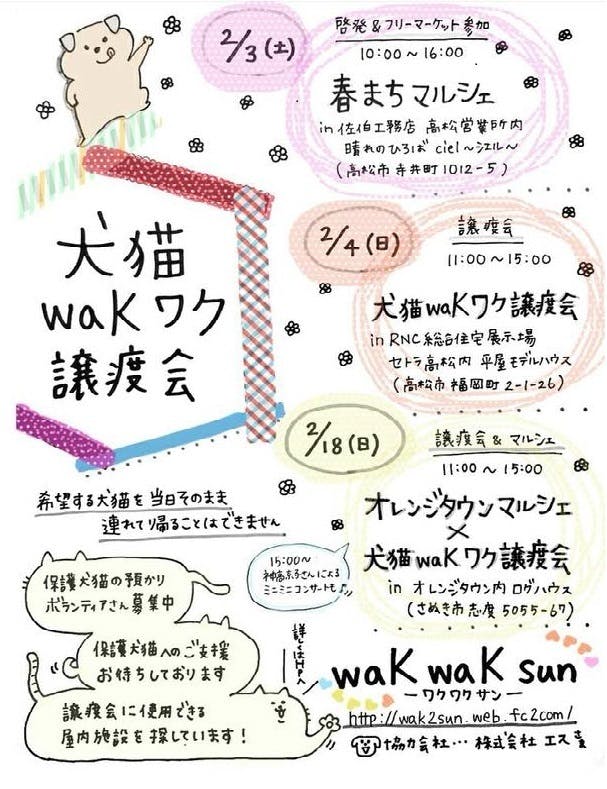 2/3(土)
啓発&フリーマーケット参加
10:00~16:00
春まちマルシェ
in 佐伯工務店 高松営業所内
晴れのひろば ciel~シエル~
(高松市寺井町1012-5)
犬猫
waKワク
譲渡会
2/4(日)
譲渡会
11:00~15:00
犬猫waKワク譲渡会
in RNC総合住宅展示場
セトラ高松内 平屋モデルハウス
(高松市福岡町2-1-26)
2/18(日)
譲渡会&マルシェ
11:00~15:00
オレンジタウンマルシェ
×
犬猫waKワク譲渡会
in オレンジタウン内 ログハウス
(さぬき市志度5055-67)
15:00~
さんによる
ミニミニコンサートも♪
希望する犬猫を当日そのまま
連れて帰ることはできません
保護犬猫の預かり
ボランティアさん募集中
保護犬猫へのご支援
お待ちしております
譲渡会に使用できる
屋内施設を探しています!
詳しくはHPへ
waK waK sun
ーワクワクサンー
http://wak2sun.web.fc2com/
協力会社…株式会社 エス